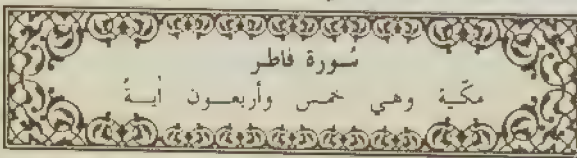 سُورة فاطر
مكّية وهي خمس وأربعون أيةً